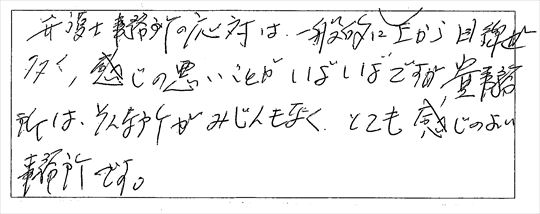 弁護士事務所の応対は、一般的に上から目線が
多く、感じの悪いことがしばしばですが、貴事務
所は、そんな所がみじんもなく、とても感じのよい
事務所です。